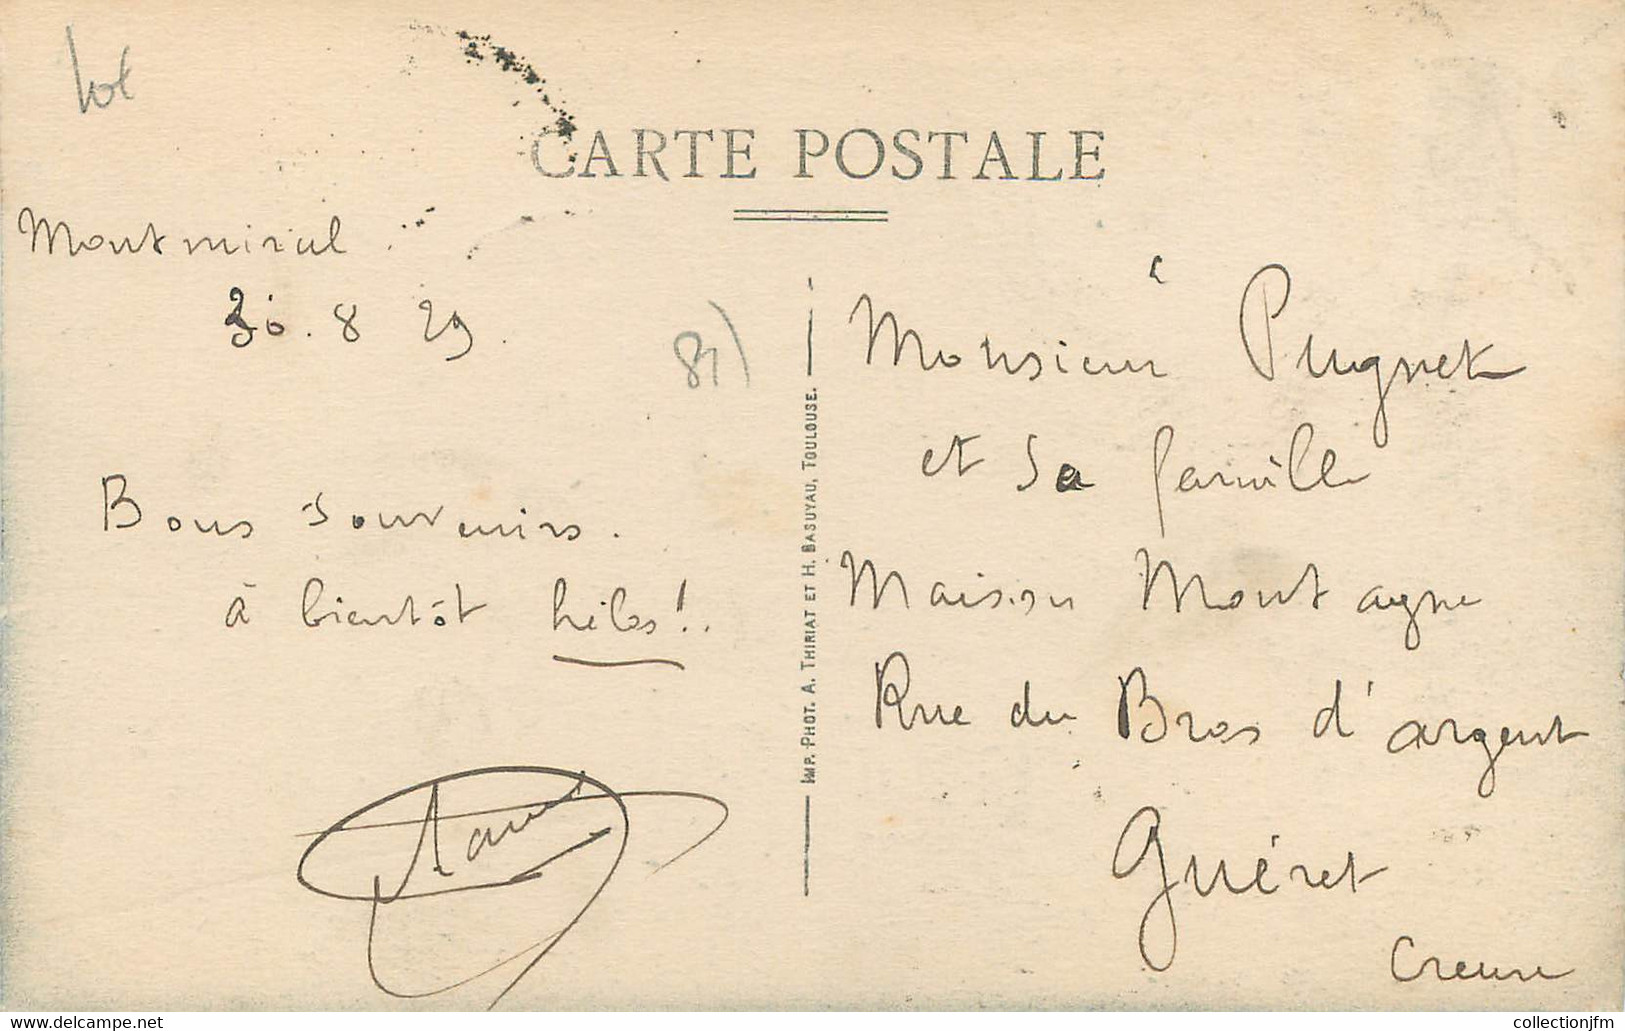 CARTE POSTALE
Montmiral
30.8 29.
81)
Bons souvenirs.
à bientôt hélas!..
IMP. PHOT. A. THIRIAT ET H. BASUYAU, TOULOUSE.
Monsieur Pugnet
et sa famille
Maison Montagne
Rue du Bras d'argent
Guéret
Creuse
collectionjfm